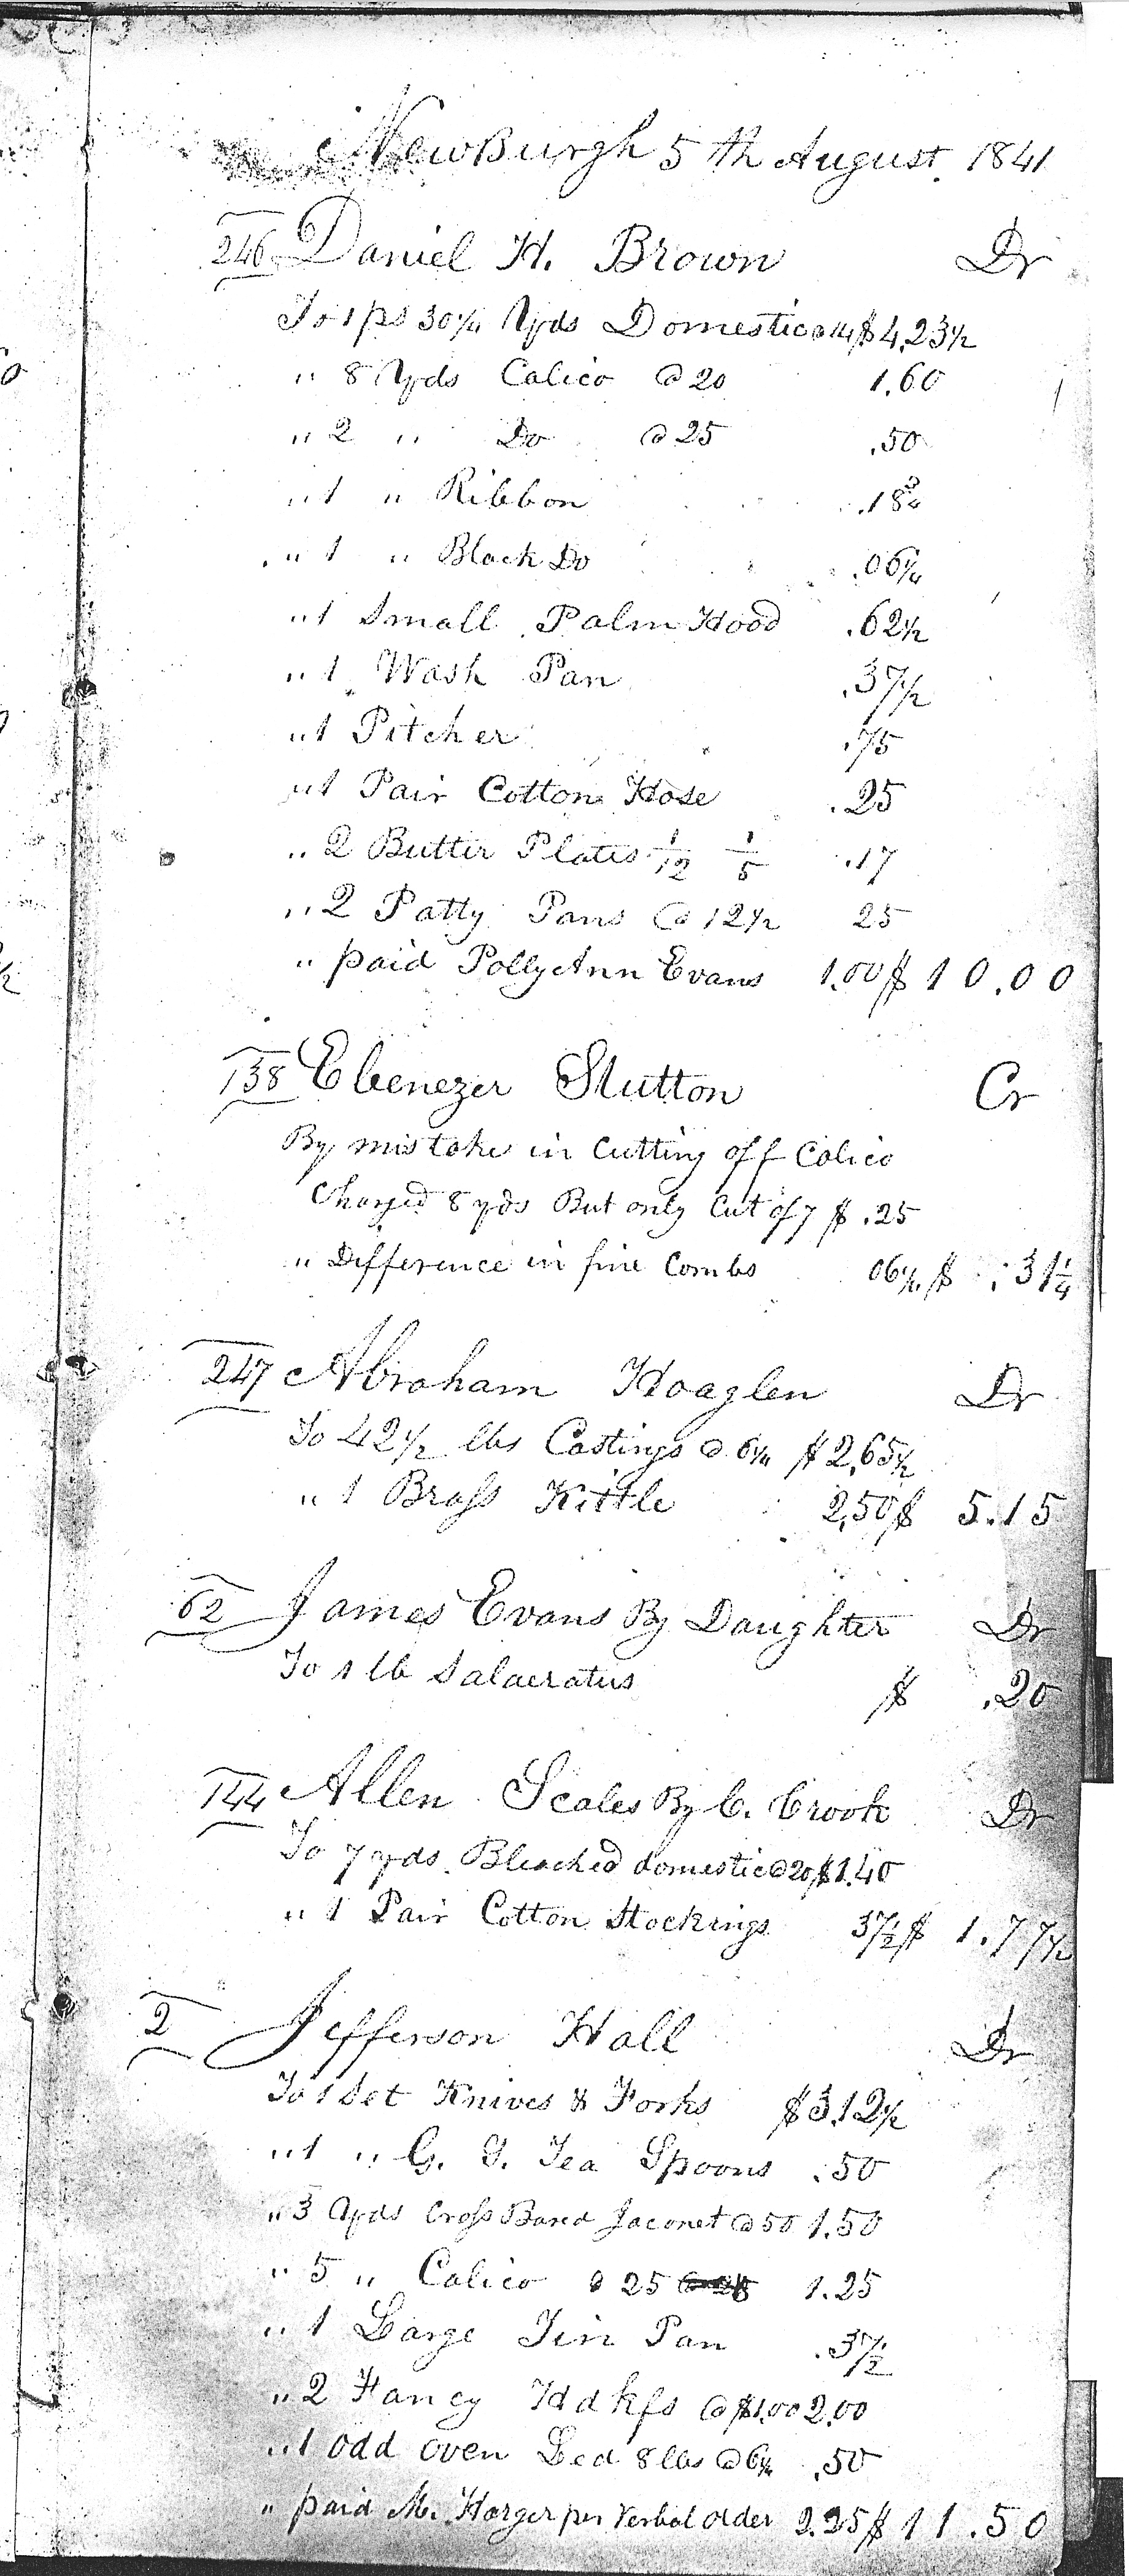 NewBurgh 5th August. 1841
246 Daniel H. Brown Dr
To 1 ps 30 1/4 Yds Domestic @ 14 $4,23 1/2
" 8 Yds Calico @ 20 1.60
" 2 " Do @ 25 .50
" 1 " Ribbon .18 3/4
" 1 " Black Do .06 1/4
" 1 Small Palm Hood .62 1/2
" 1 Wash Pan .37 1/2
" 1 Pitcher .75
" 1 Pair Cotton Hose .25
" 2 Butter Plates 1/12 1/5 .17
" 2 Patty Pans @ 12 1/2 25
" paid Polly Ann Evans 1.00 $ 10.00
138 Ebenezer Stutton Cr
By mistake in Cutting off Calico
Charged 8 yds But only Cut of 7 $ .25
" Difference in fine Combs 06 1/4 $ .31 1/4
247 Abraham Hoaglen Dr
To 42 1/2 lbs Castings @ 6 1/4 $2,65 1/2
" 1 Brass Kittle 2,50 $ 5.15
62 James Evans By Daughter Dr
To 1 lb Salaeratus $ .20
144 Allen Scales By C. Crook Dr
To 7 yds. Bleached domestic @ 20 $1.40
" 1 Pair Cotton Stockings 37 1/2 $ 1.77 1/2
2 Jefferson Hall Dr
To 1 Set Knives & Forks $3.12 1/2
" 1 " G. S. Tea Spoons .50
" 3 Yds Cross Bared Jaconet @ 50 1.50
" 5 " Calico @ 25 1.25
" 1 Large Tin Pan .37 1/2
" 2 Fancy Hdkfs @ $1.00 2.00
" 1 odd oven Led 8 lbs @ 6 1/4 .50
" paid M. Harger per Verbal older 2.25 $ 11.50